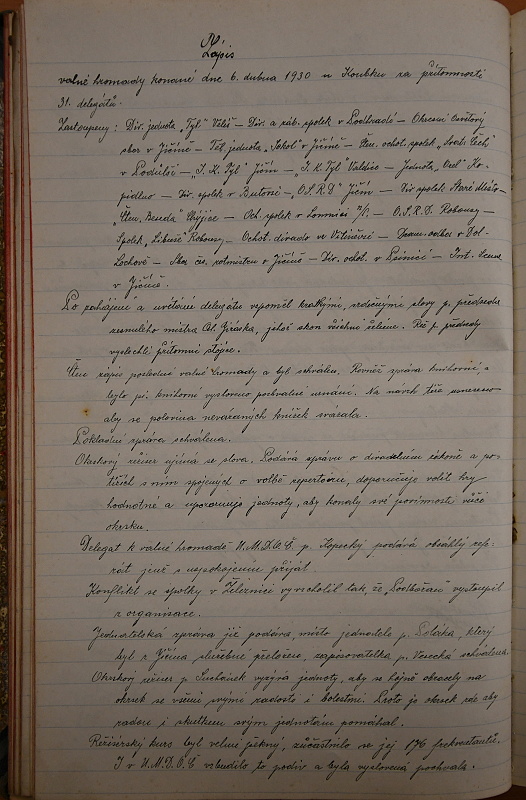 Zápis
valné hromady konané dne 6. dubna 1930 u Koubku za přítomnosti
31. delegátů.
Zastoupeny: Div. jednota „Tyl" Veliš – Div. a záb. spolek v Podhradě – Okresní osvětový
sbor v Jičíně – Těl. jednota „Sokol" v Jičíně – Čten. ochot. spolek „Svat. Čech"
v Podůlší – „J. K. Tyl" Jičín – „J. K. Tyl" Valdice – Jednota „Orel" Ko-
pidlno – Div. spolek v Butovsi – „O.S.R.D" Jičín – Div spolek Staré Místo –
„Čten. Beseda" – Och. spolek v Lomnici n/P. – O.S.R.D. Robousy –
Spolek „Libuše" Robousy – Ochot. divadlo ve Vitiněvsi – Dram. odbor v Dol.
Lochově – Sbor čs. rotmistrů v Jičíně – Div. ochot. v Pecnici – Int. Scena
v Jičíně.
Po zahájení a uvítání delegátů vzpoměl krátkými, srdečnými slovy p. předseda
zesnulého mistra Al. Jiráska, jehož skon všichni želíme. Řeč p. předsedy
vyslechli přítomní stojíce.
Čten zápis poslední valné hromady a byl schválen. Rovněž zpráva knihovní, a
bylo pí. knihovní vysloveno pochvalné uznání. Na návrh téže usneseno
aby se polovina nevázaných knížek svázala.
Pokladní zpráva schválena.
Okrskový režiser ujímá se slova. Podává zprávu o divadelním zákoně a po-
tížích s ním spojených o volbě repertoiru, doporučuje volit hry
hodnotné a upozorňuje jednoty, aby konaly své povinnosti vůči
okrsku.
Delegát k valné hromadě Ú.M.D.O.Č. p. Kopecký podává obsáhlý refe-
rát jenž s uspokojením přijat.
Konflikt se spolky v Železnici vyvrcholil tak, že „Podhoran" vystoupil
z organisace.
Jednatelská zpráva již podává místo jednatele p. Poláka, který
byl z Jičína služebně přeložen, zapisovatelka p. Vesecká schválena.
Okrskový režiser p. Suchánek vyzývá jednoty, aby se hojně obracely na
okrsek se všemi svými radostmi i bolestmi. Proto je okrsek zde aby
radou i skutkem svým jednotám pomáhal.
Režisérský kurs byl velmi pěkný, zúčastnilo se jej 176 frekventantů.
I v Ú.M.D.O.Č vzbudilo to podiv a byla vyslovená pochvala.